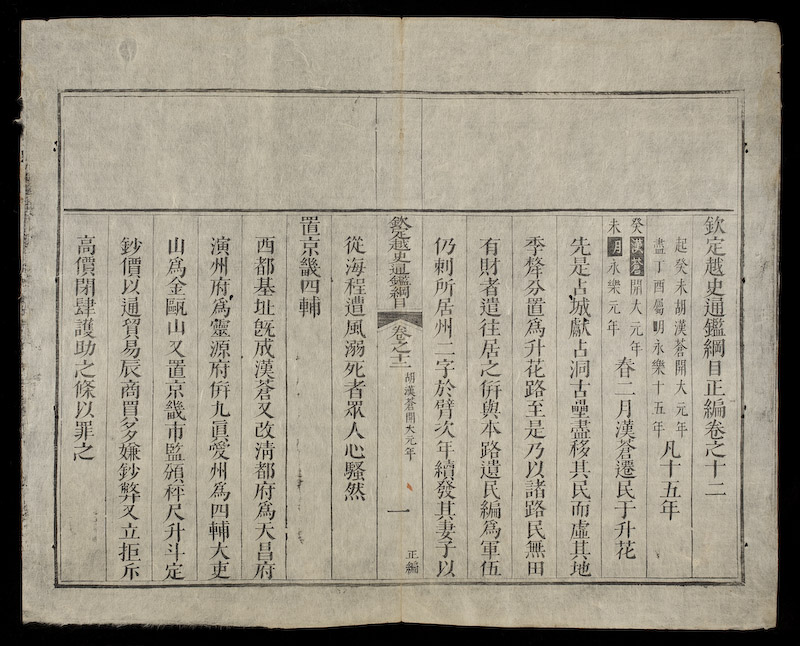 欽定越史通鑑綱目正編卷之十二
起癸未胡漢蒼開大元年
盡丁酉屬明永樂十五年
凡十五年
癸未
漢蒼開大元年
明永樂元年
春二月漢蒼遷民于升花
先是占城獻占洞古壘盡移其民而虛其地
季犛分置爲升花路至是乃以諸路民無田
有財者遣往居之倂與本路遺民編爲軍伍
仍刺所居州二字於臂次年續發其妻子以
欽定越史通鑑綱目
卷之十二
胡漢蒼開大元年
一
正編
從海程遭風溺死者眾人心騷然
置京畿四輔
西都基址旣成漢蒼又改清都府爲天昌府
演州府爲靈源府倂九眞愛州爲四輔大吏
山爲金甌山又置京畿市監頒秤尺升斗定
鈔價以通貿易辰商買多嫌鈔弊又立拒斥
高價閉肆護助之條以罪之